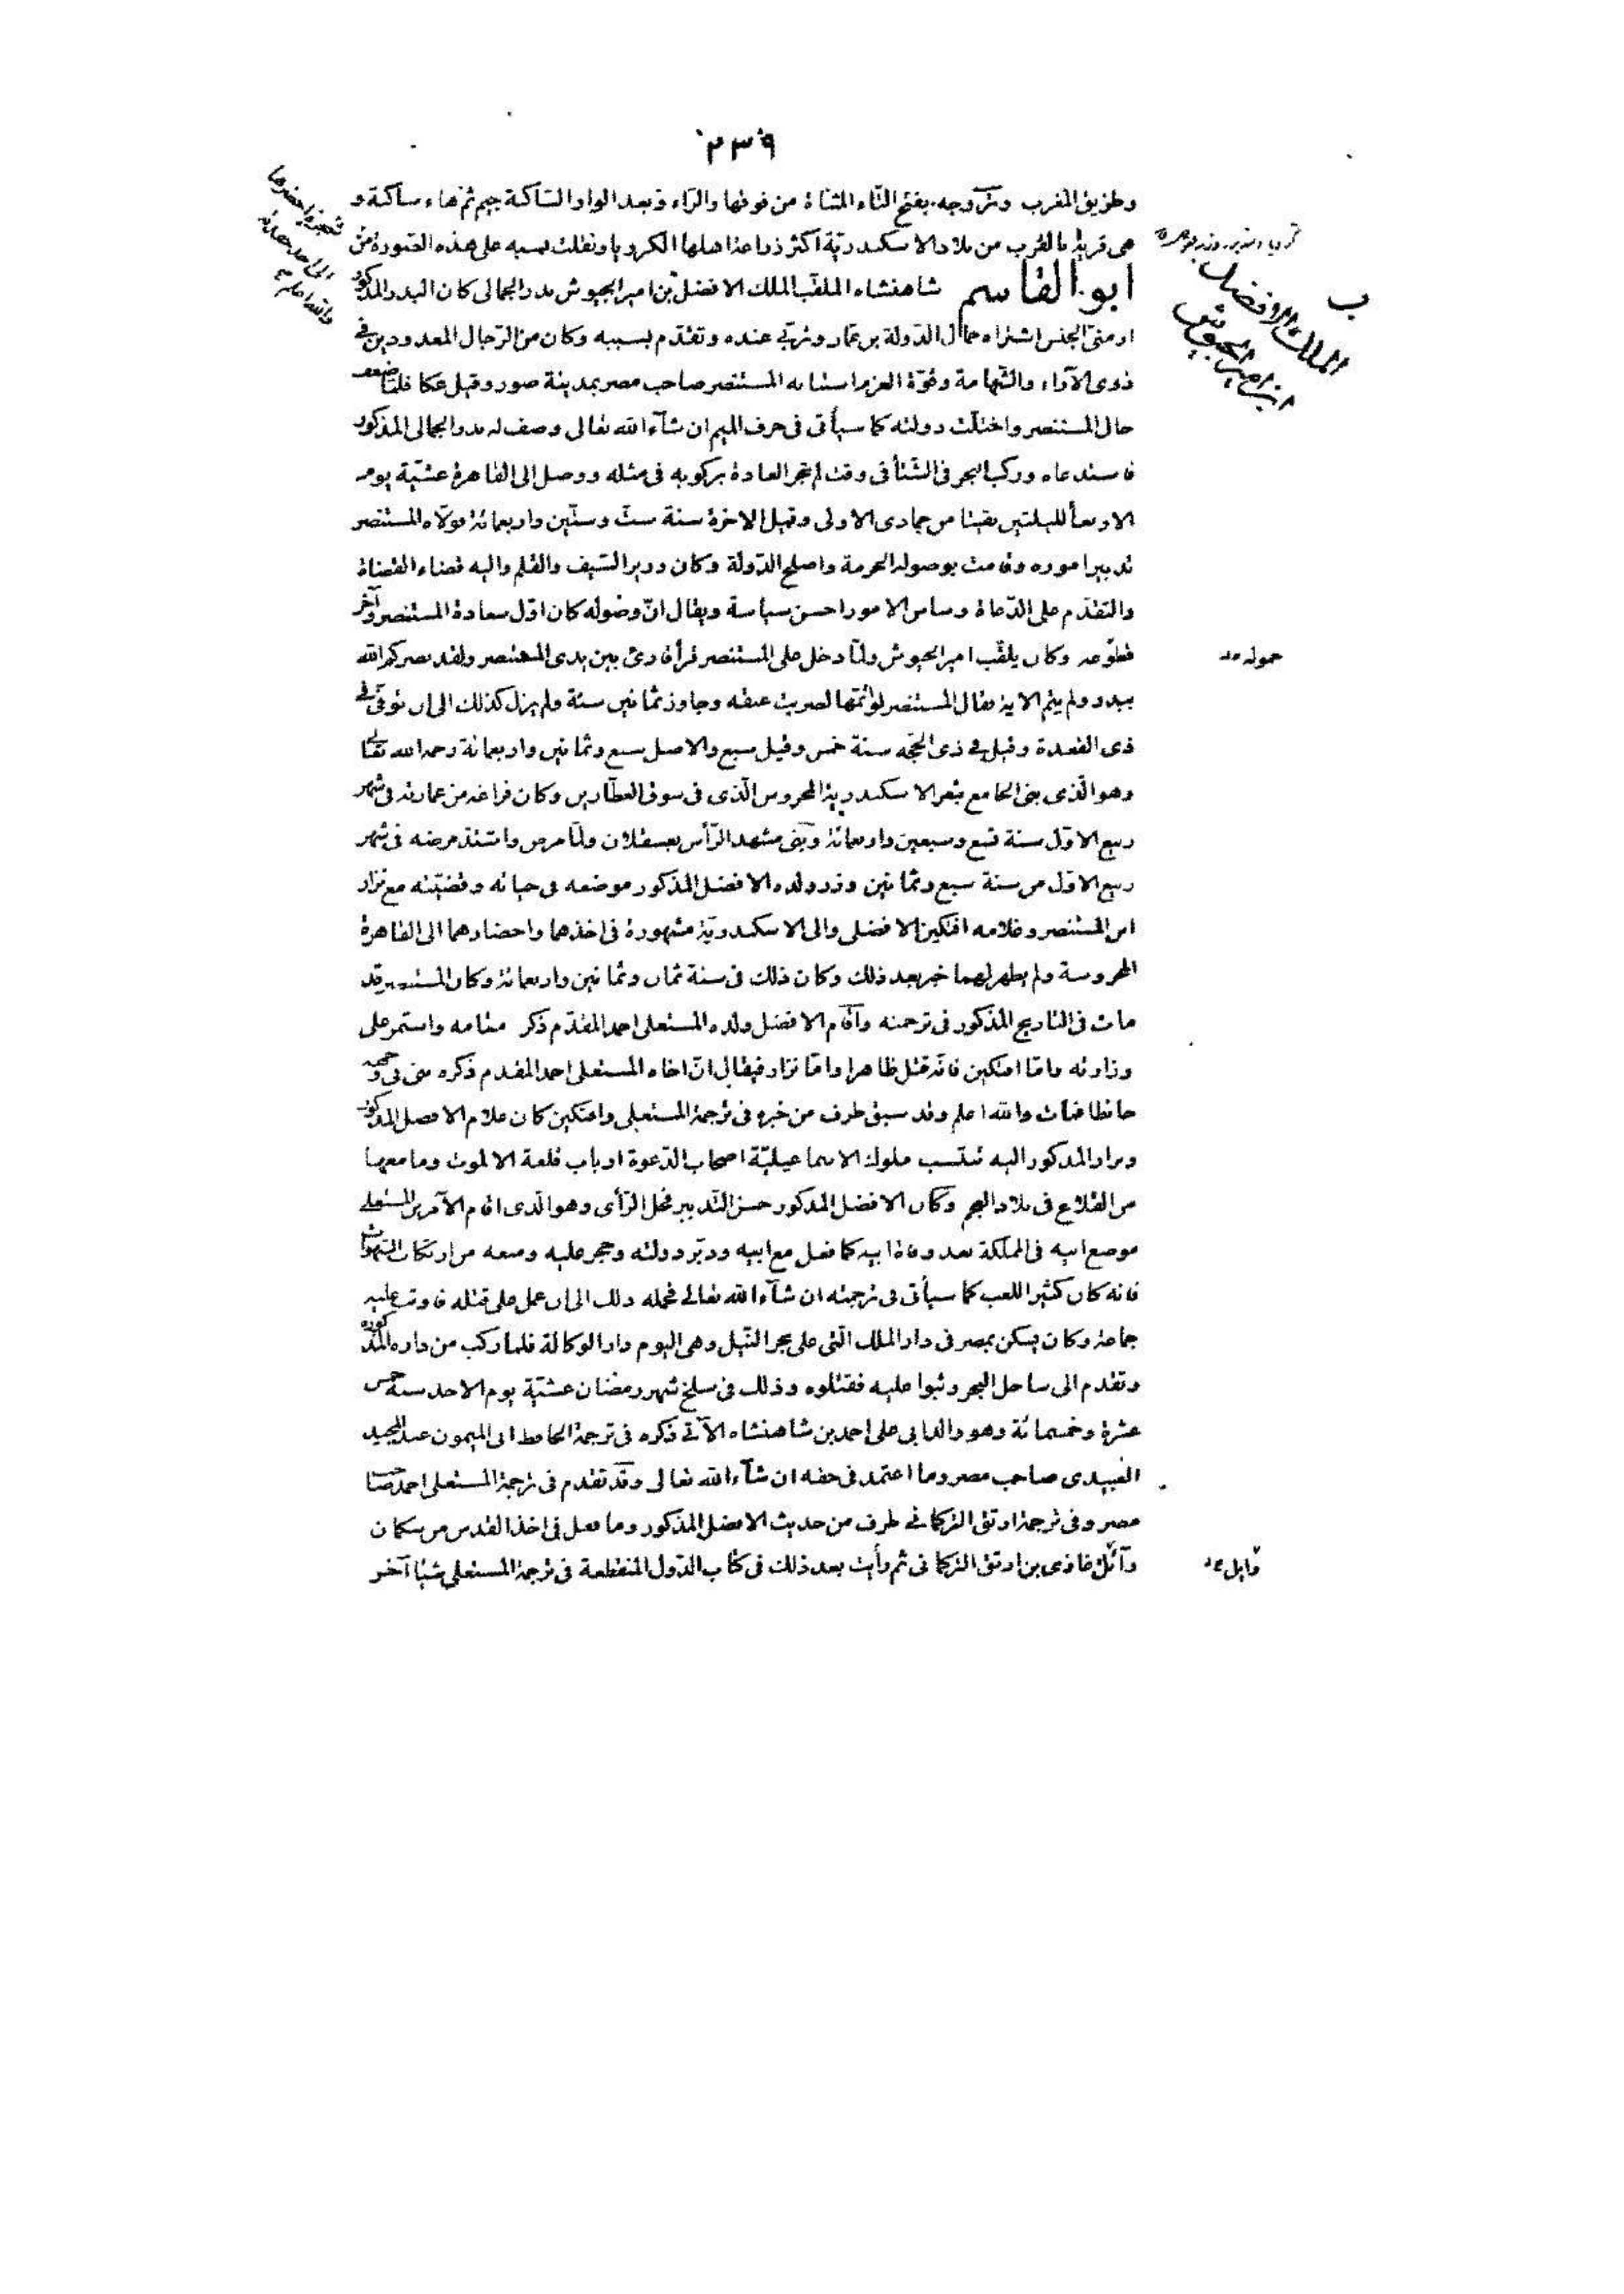 ٢٣٩
وطريق المغرب وتَروجه بفتح التّاء المثناة من فوقها والرّاء وبعد الواو السّاكنة جيم ثم هاء ساكنة و
هى قرية بالقرب من بلاد الاسكندريّة اكثر زراعة اهلها الكرويا ونقلت نسبه على هذه الصّورة من
ابو القاسم شاهنشاه الملقب الملك الافضل بن امير الجيوش بدر الجمالى كان البدر المذكور
ارمنىّ الجنس اشتراه جمال الدّولة بن عمّار وتربّى عنده وتقدّم بسببه وكان من الرّجال المعدودين فى
ذوى الآراء والشّهامة وقوّة العزم استنابه المستنصر صاحب مصر بمدينة صور وقيل عكا فلمّا ضعف
حال المستنصر واختلّت دولته كما سيأتى فى حرف الميم ان شآء الله تعالى وصف له بدر الجمالى المذكور
فاستدعاه وركب البحر فى الشّتأ فى وقت لم تجر العادة بركوبه فى مثله ووصل الى القاهرة عشيّة يوم
الاربعأ لليلتين بقيتا من جمادى الاولى وقيل الاخرة سنة ستّ وستّين واربعمائة فولّاه المستنصر
تدبير اموره وقامت بوصوله الحرمة واصلح الدّولة وكان وزير السّيف والقلم واليه قضاء القضاة
والتقدّم على الدّعاة وساس الامور احسن سياسة ويقال انّ وصوله كان اوّل سعادة المستنصر وآخر
قطوعه وكان يلقّب امير الجيوش ولمّا دخل على المستنصر قرأ قارئ بين يدى المستنصر ولقد نصركم الله
ببدر ولم يتمّ الاية فقال المستنصر لو اتمّها لضربت عنقه وجاوز ثمانين سنة ولم يزل كذلك الى ان توفّى فى
ذى القعدة وقيل فى ذى الحجّه سنة خمس وقيل سبع والاصل سبع وثمانين واربعمائة رحمه الله تعالى
وهو الّذى بنى الجامع بثغر الاسكندرية المحروس الّذى فى سوق العطّارين وكان فراغه من عمارته فى شهر
ربيع الاوّل سنة تسع وسبعين واربعمائة وبَنى مشهد الرّأس بعسقلان ولمّا مرض واشتدّ مرضه فى شهر
ربيع الاوّل من سنة سبع وثمانين وزر ولده الافضل المذكور موضعه فى حياته وقضيّته مع نزار
ابن المستنصر وغلامه افتكين الافضلى والى الاسكندريّة مشهورة فى اخذهما واحضارهما الى القاهرة
المحروسة ولم يظهر لهما خبر بعد ذلك وكان ذلك فى سنة ثمان وثمانين واربعمائة وكان المستنصر قد
مات فى التاريخ المذكور فى ترجمته وأقام الافضل ولده المستعلى احمد المقدّم ذكر مقامه واستمر على
وزارته وامّا افتكين فانّه قتل ظاهرا وامّا نزار فيقال انّ اخاه المستعلى احمد المقدم ذكره بنى فى وجهه
حائطا فمات والله اعلم وقد سبق طرف من خبره فى ترجمة المستعلى وافتكين كان غلام الافضل المذكور
ونزار المذكور اليه تنتسب ملوك الاسماعيليّة اصحاب الدّعوة ارباب قلعة الالموت وما معها
من القلاع فى بلاد العجم وكان الافضل المذكور حسن التّدبير فحل الرّأى وهو الّذى اقام الآمر بن المستعلى
موضع ابيه فى المملكة بعد وفاة ابيه كما فعل مع ابيه ودبّر دولته وحجر عليه ومنعه من ارتكاب الشهوات
فانه كان كثير اللعب كما سيأتى فى ترجمته ان شآء الله تعالى فحمله ذلك الى ان عمل على قتله فاوثب عليه
جماعة وكان يسكن بمصر فى دار الملك الّتى على بحر النّيل وهى اليوم دار الوكالة فلما ركب من داره المذكوره
وتقدم الى ساحل البحر وثبوا عليه فقتلوه وذلك فى سلخ شهر رمضان عشيّة يوم الاحد سنة خمس
عشرة وخمسمائة وهو والد ابى على احمد بن شاهنشاه الآتى ذكره فى ترجمة الحافظ ابى الميمون عبد المجيد
العبيدى صاحب مصر وما اعتمد فى حقه ان شآء الله تعالى وقد تقدم فى ترجمة المستعلى احمد صاحب
مصر وفى ترجمة ارتق التركمانى طرف من حديث الافضل المذكور وما فعل فى اخذ القدس من سكمان
وآئل غازى بن ارتق التركمانى ثم رأيت بعد ذلك فى كتاب الدّول المنقطعة فى ترجمة المستعلى شيئا آخر
ب
الملك الافضل
ابن امير الجيوش
والله اعلم